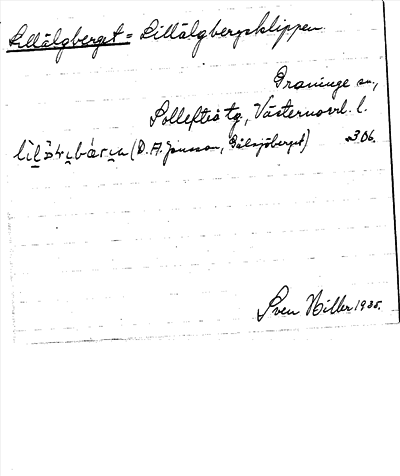 Lillälgberget = Lillälgbergsklippen.
Graninge sn,
Sollefteå tg, Västernorrl. l.
(D. A. Jonsson, Gålsjöberget) 306.
Sven Hiller 1935.